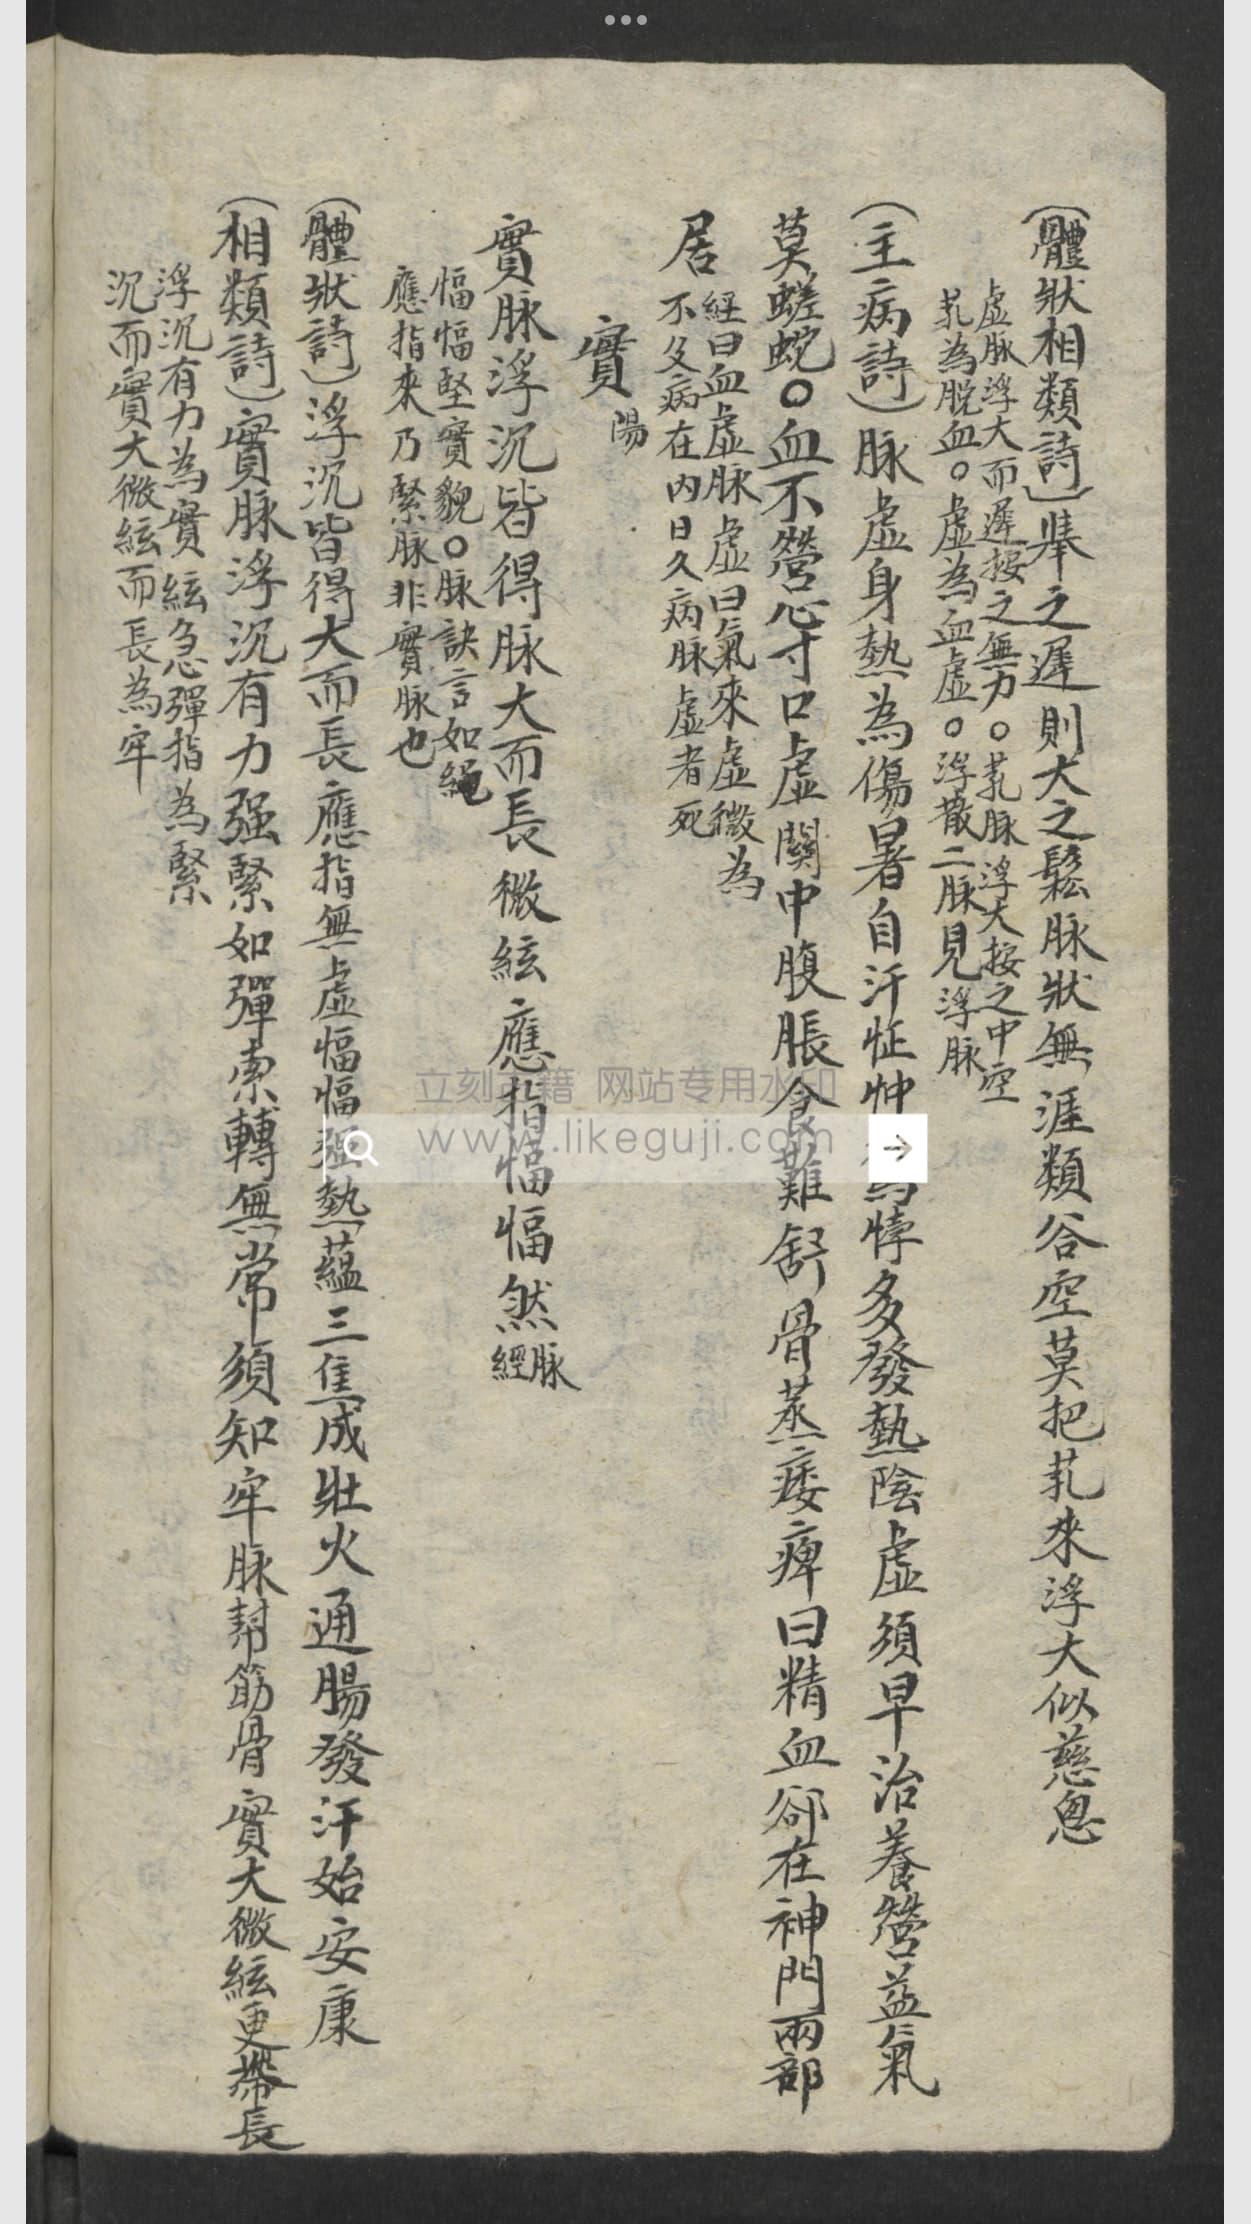 (體狀相類詩)舉之遲則大之鬆脉狀無涯類谷空莫把芤來浮大似慈恩
虛脉浮大而遲按之無力○芤脉浮大按之中空
芤為脫血○虛為血虛○浮散二脉見浮脉
(主病詩)脉虛身熱為傷暑自汗怔忡驚悸多發熱陰虛須早治養營益氣
莫蹉蛇○血不營心寸口虛關中腹脹食難舒骨蒸痿痺曰精血卻在神門兩部
居
經曰血虛脉虛曰氣來虛微為
不及病在内日久病脉虛者死
實陽
實脉浮沉皆得脉大而長微絃應指愊愊然脉經
愊愊堅實貌○脉訣言如繩
應指來乃緊脉非實脉也
(體狀詩)浮沉皆得大而長應指無虛愊愊強熱蘊三焦成壯火通腸發汗始安康
(相類詩)實脉浮沉有力强緊如彈索轉無常須知牢脉幫筋骨實大微絃更帶長
浮沉有力為實絃急彈指為緊
沉而實大微絃而長為牢
立刻古籍 网站专用水印
www.likeguji.com